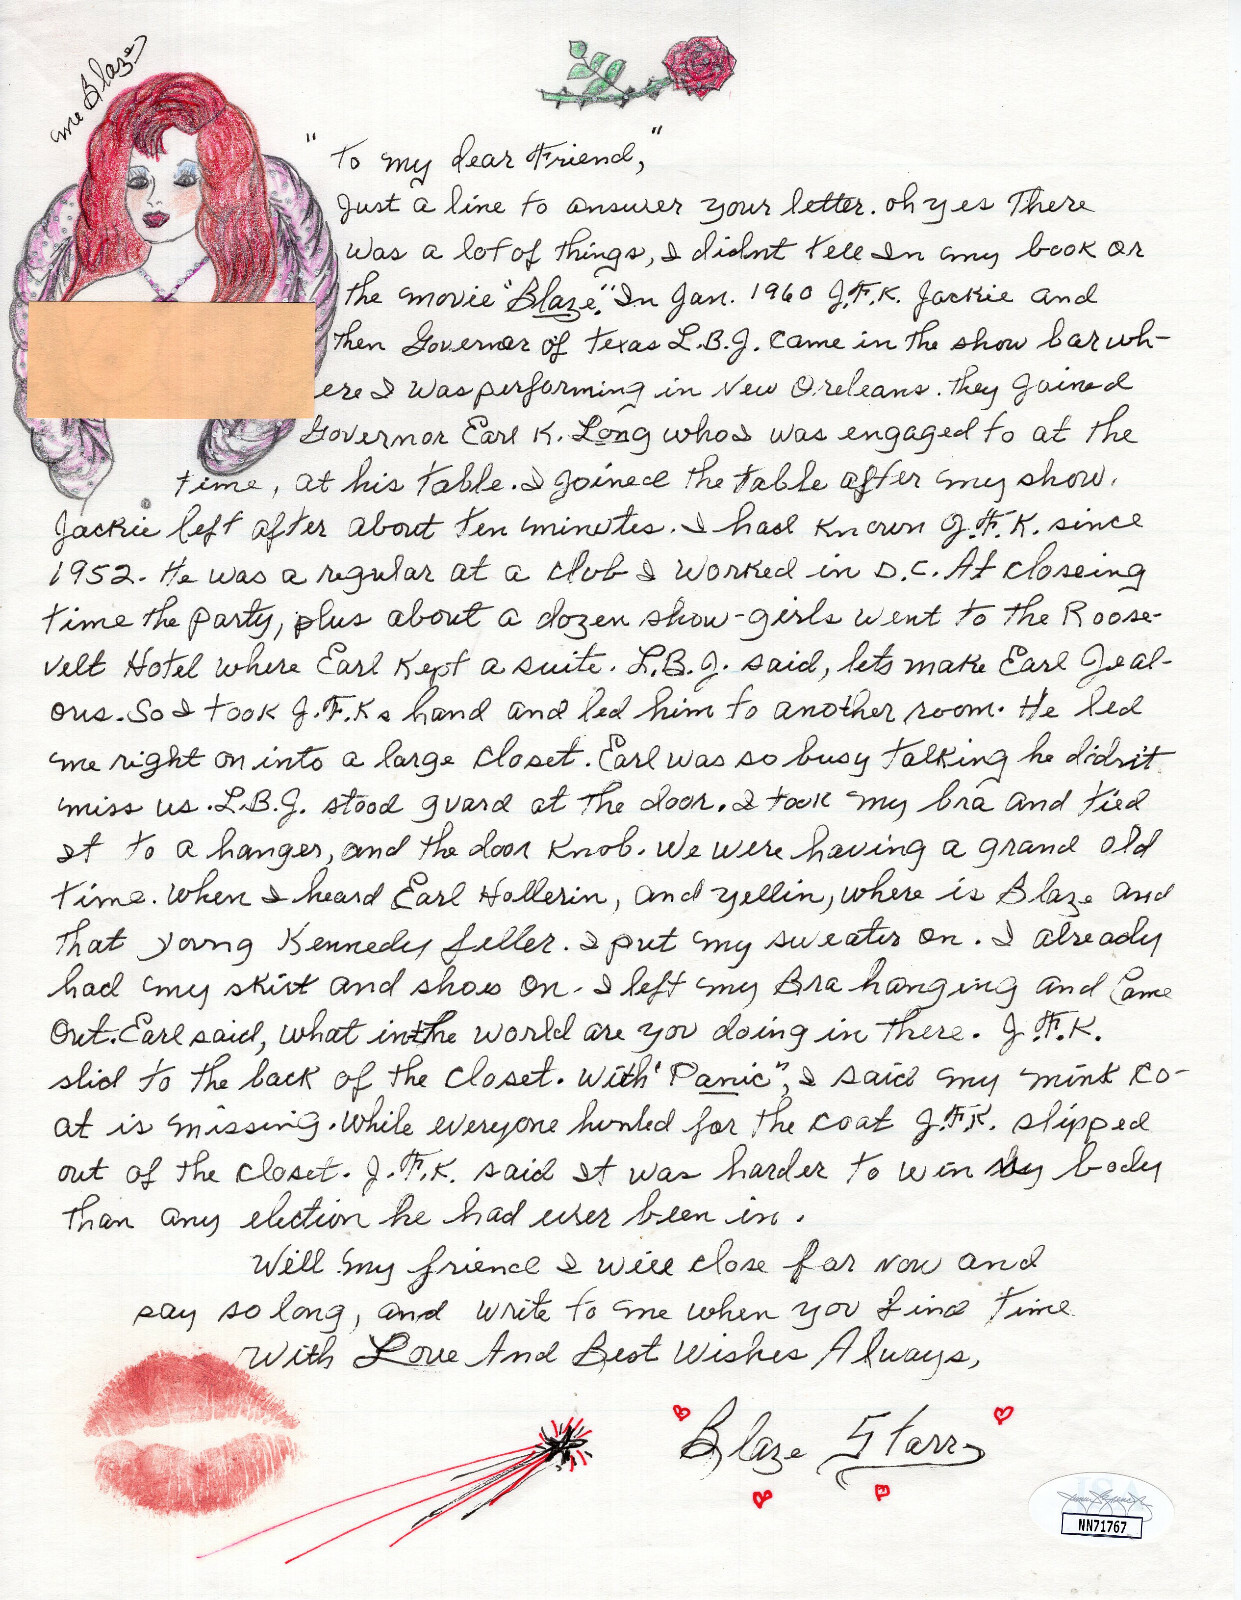 me Blaze
"To my dear Friend,"
Just a line to answer your letter. oh yes There
was a lot of things, I didnt tell In my book or
the movie "Blaze." In Jan. 1960 J.F.K. Jackie and
then Governor of Texas L.B.J. came in the show bar wh-
ere I was performing in New Orleans. They joined
Governor Earl K. Long who I was engaged to at the
time, at his table. I joined the table after my show.
Jackie left after about ten minutes. I had known J.F.K. since
1952. He was a regular at a club I worked in D.C. At closeing
time the party, plus about a dozen show-girls went to the Roose-
velt Hotel where Earl Kept a suite. L.B.J. said, lets make Earl Jeal-
ous. So I took J.F.Ks hand and led him to another room. He led
me right on into a large closet. Earl was so busy talking he didn't
miss us. L.B.J. stood guard at the door. I took my bra and tied
It to a hanger, and the door Knob. We were having a grand old
time. When I heard Earl Hollerin, and yellin, where is Blaze and
that young Kennedy feller. I put my sweater on. I already
had my skirt and shoes on. I left my Bra hanging and Came
Out. Earl said, what in the world are you doing in there. J.F.K.
slid to the back of the closet. With "Panic", I said my mink co-
at is missing. While everyone hunted for the coat J.F.K. slipped
out of the closet. J.F.K. said It was harder to win my body
than any election he had ever been in.
Well my friend I will close for now and
say so long, and write to me when you find time
With Love And Best Wishes Always,
Blaze Starr
NN71767